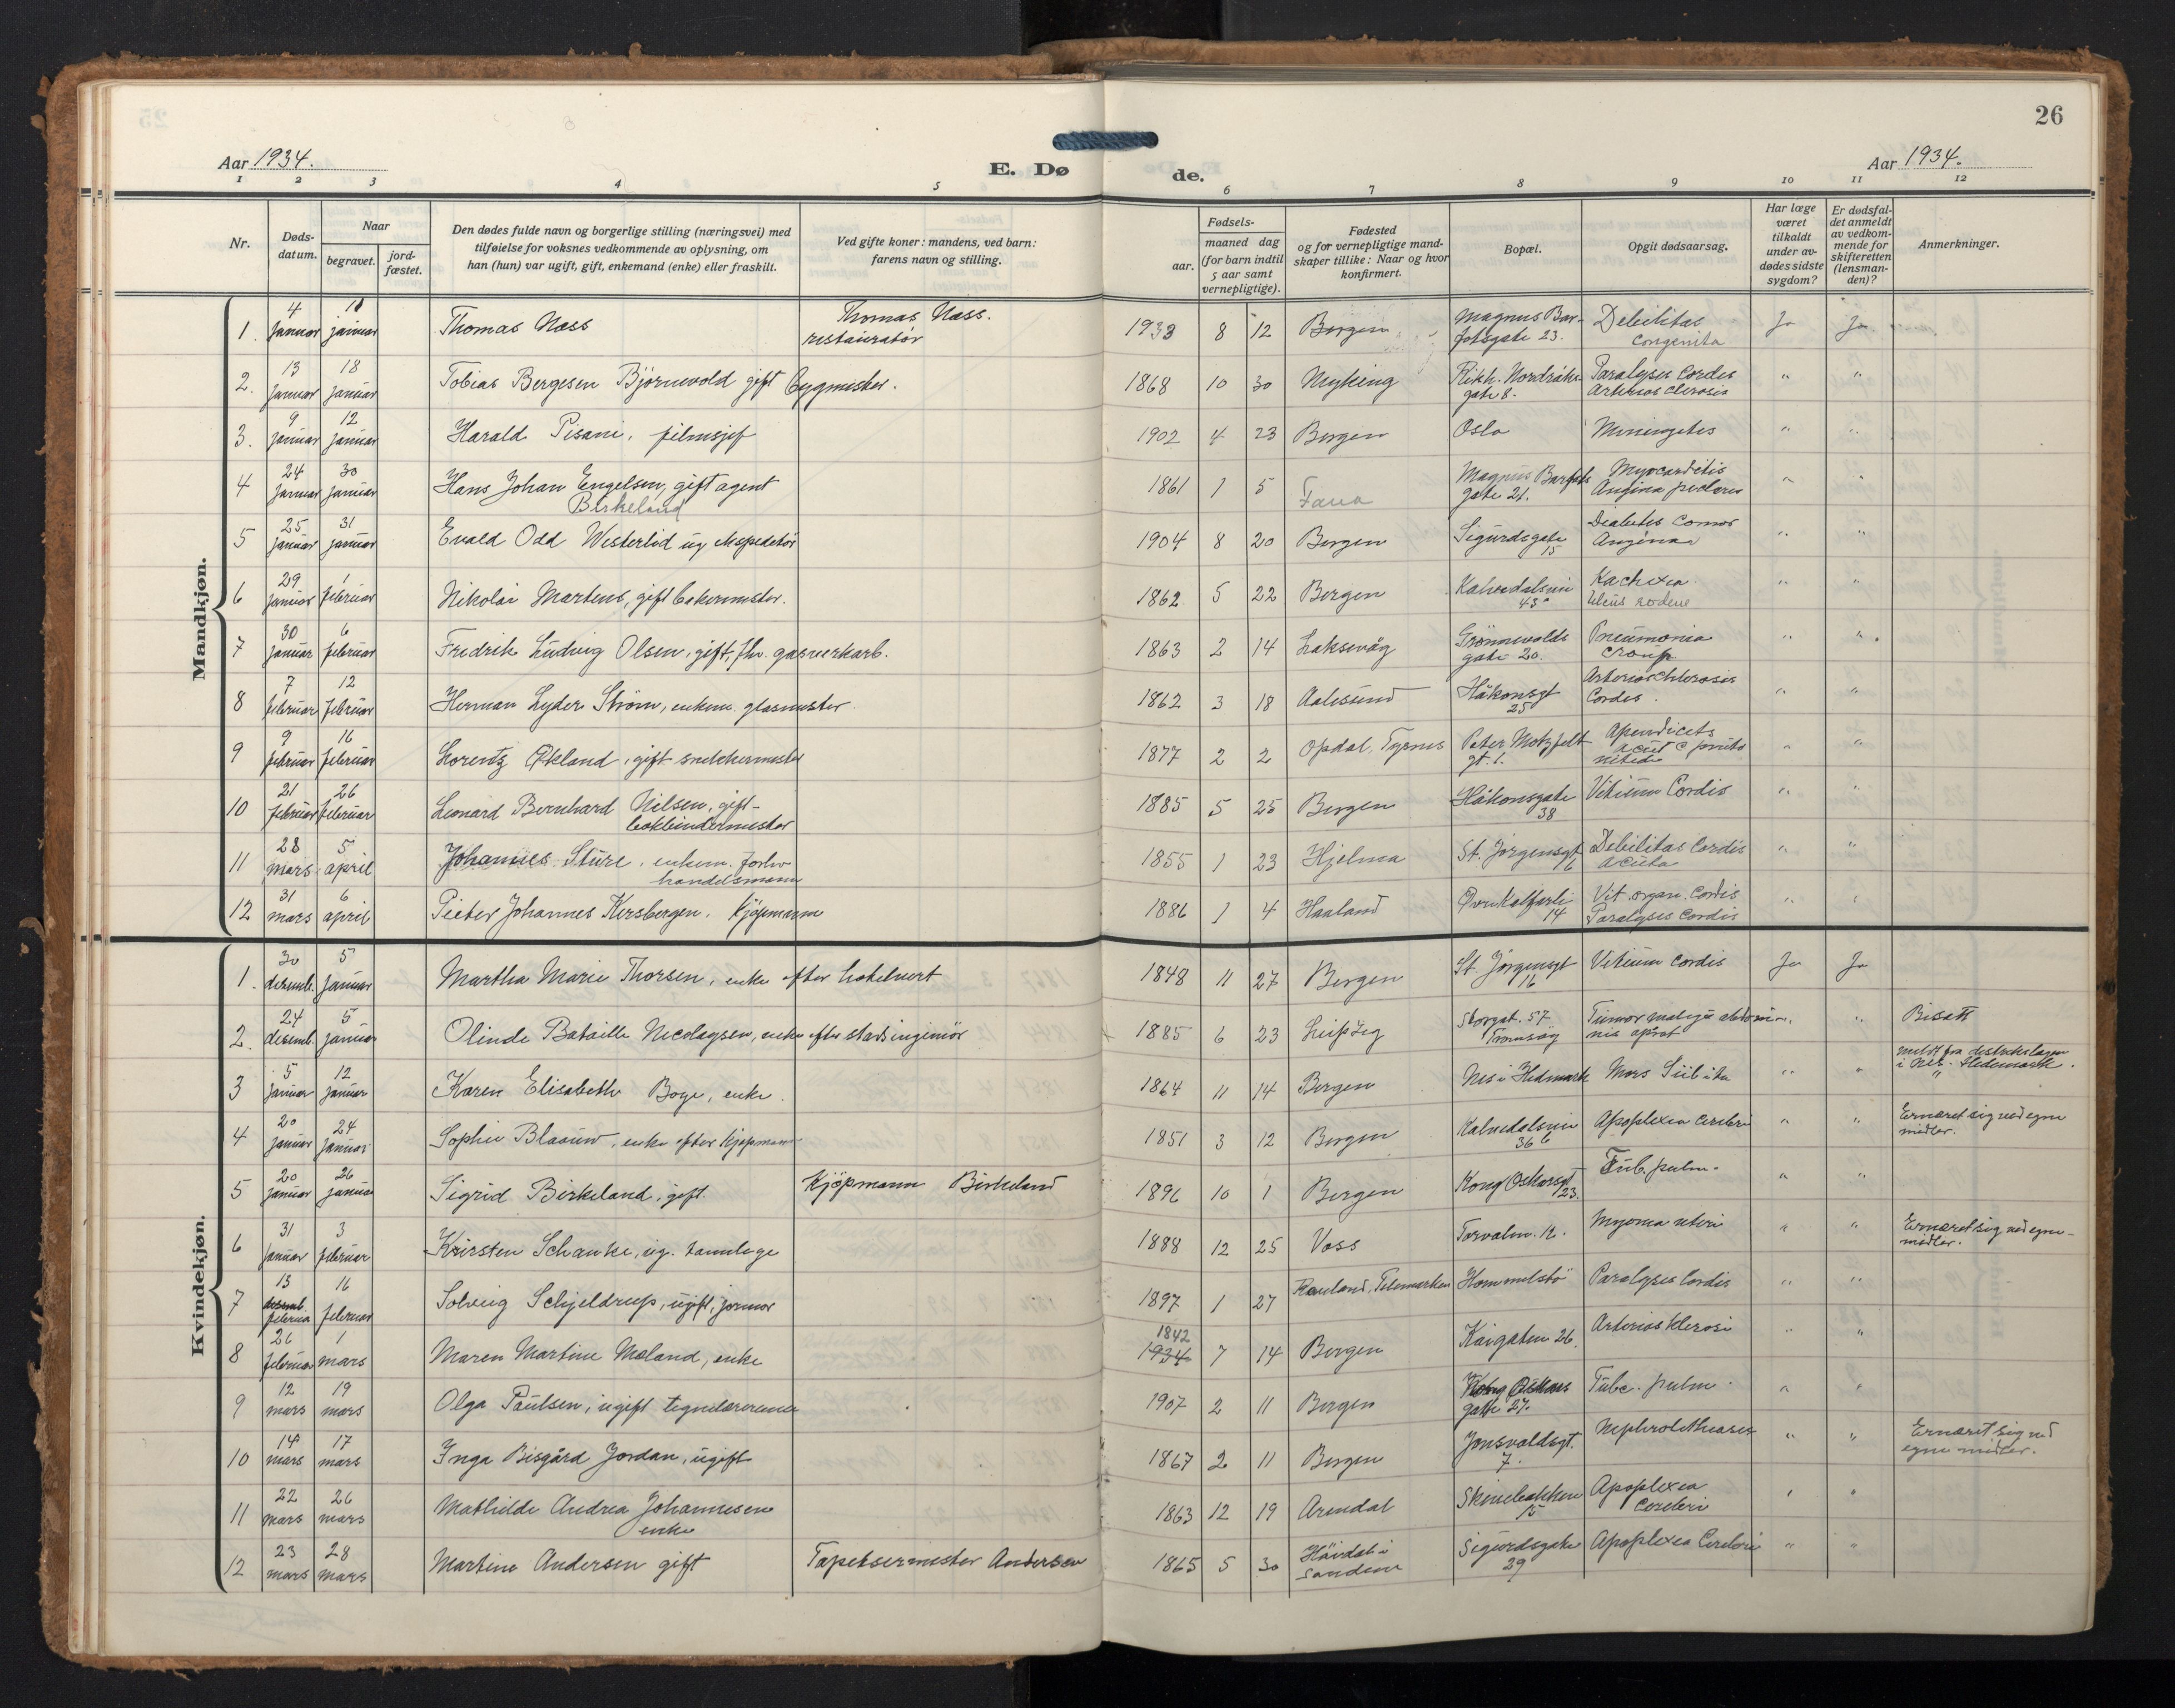 26
Aar 1934.
E. Dø de.
Aar 1934.
1 2 3 4 5 6 7 8 9 10 11 12
Nr.
Døds-
datum.
Naar
begravet.
jord-
fæstet.
Den dødes fulde navn og borgerlige stilling (næringsvei) med
tilføielse for voksnes vedkommende av oplysning, om
han (hun) var ugift, gift, enkemand (enke) eller fraskilt.
Ved gifte koner: mandens, ved barn:
farens navn og stilling.
Fødsels-
aar.
maaned dag
(for barn indtil
5 aar samt
vernepligtige).
Fødested
og for vernepligtige mand-
skaper tillike: Naar og hvor
konfirmert.
Bopæl.
Opgit dødsaarsag.
Har læge
været
tilkaldt
under av-
dødes sidste
sygdom?
Er dødsfal-
det anmeldt
av vedkom-
mende for
skifteretten
(lensman-
den)?
Anmerkninger.
Mandkjøn.
1. 4 januar 10 januar Thomas Næss Thomas Næss. restauratør 1933 8 12 Bergen Magnus Bar-
fotsgate 23. Debilitas congenita Ja Ja
2. 13 januar 18 januar Tobias Bergesen Björnevold gift bygmester. 1868 10 30 Myking Rikh. Nordråks
gate 8. Paralyses Cordis
Arteriosclerosis " "
3. 9 januar 12 januar Harald Pisani, filmsjef 1902 4 23 Bergen Oslo Meningetes " "
4 24 januar 30 januar Hans Johan Engelsen, gift agent
Birkeland 1861 1 5 Fana Magnus Barfots
gate 21. Myocarditis
Angina pectoris " "
5 25 januar 31 januar Evald Odd Westerlid ug ekspeditör 1904 8 20 Bergen Sigurdsgate
15 Diabetes Comos
Angina " "
6 29 januar 1 februar Nikolai Martens, gift bakermester. 1862 5 22 Bergen Kalvedalsvei
43a Kachexia
Ulcus rodens " "
7 30 januar 6 februar Fredrik Ludvig Olsen, gift, fhv. gasverkarb. 1863 2 14 Laksevåg Grönnevolds
gate 20. Pneumonia
croup " "
8 7 februar 12 februar Herman Lyder Strøm, enkem. glasmester 1862 3 18 Aalesund Håkonsgt
25 Arterioschlerosis
Cordis. " "
9 9 februar 16 februar Lorentz Økland, gift snekkermester 1877 2 2 Opdal, Tysnes Peter Motzfelt
gt. 1. Apendicets
acut c " "
10 21 februar 26 februar Leonard Bernhard Nilsen, gift
bokbindermester 1885 5 25 Bergen Håkonsgate
38 Vitium Cordis " "
11 28 mars 5 april Johannes Sture, enkem. forhv
handelsmann 1855 1 23 Hjelma St. Jörgensgt
16 Debilitas Cordis
acuta " "
12 31 mars 6 april Pieter Johannes Kersbergen, Kjöpmann 1886 1 4 Haaland Øvre Kalfarli
14 Vit. organ. Cordis
Paralyses Cordis " "
Kvindekjøn.
1. 30 desemb. 5 januar Martha Marie Thorsen, enke efter hotelvert 1848 11 27 Bergen St Jörgensgt
16 Vitium Cordis Ja Ja
2. 24 desemb. 5 januar Olinde Bataille Nicolaysen, enke efter stadsingeniör 1885 6 23 Leipzig Storgat. 57
Tromsöy Tumor malign abdomi-
nis " Bisatt
3 5 januar 12 januar Karen Elisabeth Boge, enke. 1864 11 14 Bergen Nes i Hedmark Mors Subita " " meldt fra distriktslægen
i Nes. Hedemark.
4 20 januar 24 januar Sophie Blaauw, enke efter Kjøpmann 1851 3 12 Bergen Kalvedalsvei
36 b Apoplexia Cerebri " " Ernæret sig ved egne
midler.
5 20 januar 26 januar Sigrid Birkeland, gift Kjöpmann Birkeland 1896 10 1 Bergen Kong Oskarsgt
23. Tub. pulm. " "
6 31 januar 3 februar Kirsten Schanke, ug. tannlege 1888 12 25 Voss Torvalm. 12. Myoma uteri " " Ernæret sig ved egne
midler.
7 13 desemb. februar 16 februar Solveig Schjeldrup, ugift, jormor 1897 1 27 Rauland, Telemarken Hommelstö Paralyses Cordis " "
8 26 februar 1 mars Maren Martine Moland, enke 1842 1934 7 14 Bergen Kaigaten 26. Arteriosklerosi " "
9 12 mars 19 mars Olga Paulsen, ugift tegnelærerinne 1907 2 11 Bergen Kong Oskars
gate 27. Tube. pulm. " "
10 14 mars 17 mars Inga Bisgård Jordan, ugift 1867 2 11 Bergen Jonsvoldsgt.
7. Nephrolithiases " " Ernæret sig ved
egne midler.
11 22 mars 26 mars Mathilde Andrea Johannesen
enke 1863 12 19 Arendal Skivebakken
15 Apoplexia
Cerebri " "
12 23 mars 28 mars Martine Andersen gift Tapetsermester Andersen 1865 5 30 Håvdal i
Sandene Sigurdsgate
29 Apoplexia Cerebri " "